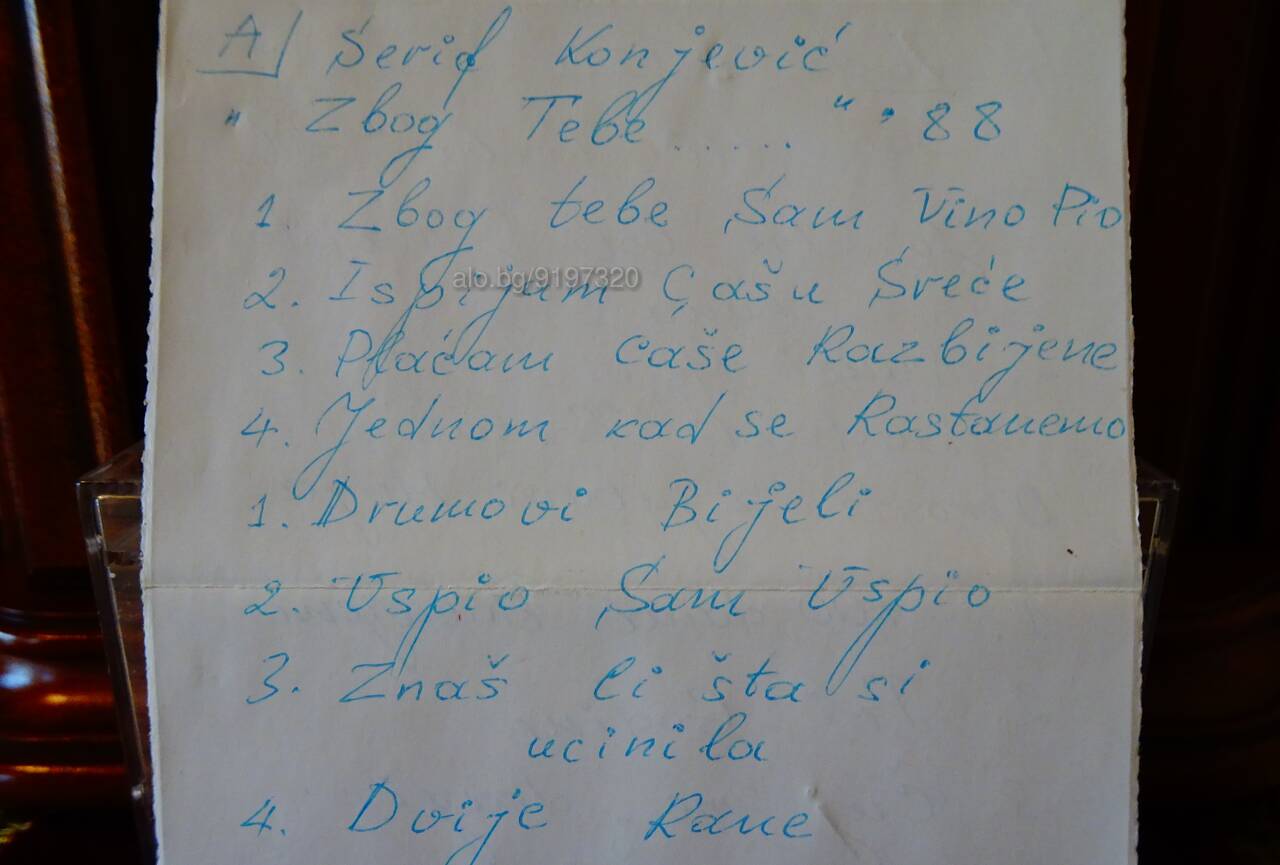 A Šerif Konjević
" Zbog Tebe ...... " '88
1. Zbog tebe Sam Vino Pio
2. Ispijam Čašu Sreće
alo.bg/9197320
3. Plaćam caše Razbijene
4. Jednom kad se Rastanemo
1. Drumovi Bijeli
2. Uspio Sam Uspio
3. Znaš li šta si
ucinila
4. Dvije Rane